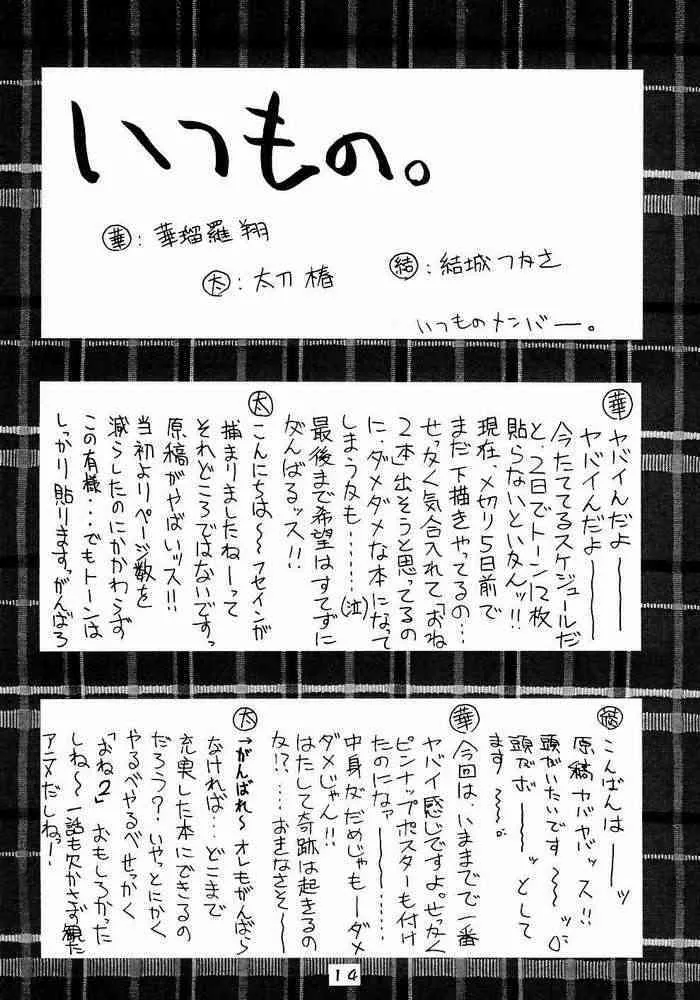 いつもの。
華：華瑠羅翔
太：太刀椿
結：結城つかさ
いつものメンバー。
華 ヤバイんだよ――
ヤバイんだよ――
今たててるスケジュールだ
と、2日でトーン12枚
貼らないといかんッ!!
現在、〆切り5日前で
まだ下描きやってるの…
せっかく気合入れて「おね
2本」出そうと思ってるの
に、ダメダメな本になって
しまうかも……(泣)
最後まで希望はすてずに
がんばるッス!!
太 こんにちは～～フセインが
捕まりましたねーって
それどころではないですっ
原稿がやばいッス!!
当初よりページ数を
減らしたのにかかわらず
この有様…でもトーンは
しっかり貼りますっがんばろ
結 こんばんは――ッ
原稿ヤバヤバッス!!
頭がいたいです～～ッ。
頭がボ――ッとして
ます～～。
華 今回は、いままでで一番
ヤバイ感じですよ。せっかく
ピンナップポスターも付け
たのになァ――……
中身がだめじゃもーダメ
ダメじゃん!!
はたして奇跡は起きるの
か!?…おきなさそ～
太 →がんばれ～ オレもがんばら
なければ…どこまで
充実した本にできるの
だろう？いやっとにかく
やるべやるべせっかく
「おね2」おもしろかった
しね～一話も欠かさず観た
アニメだしねっー!
14